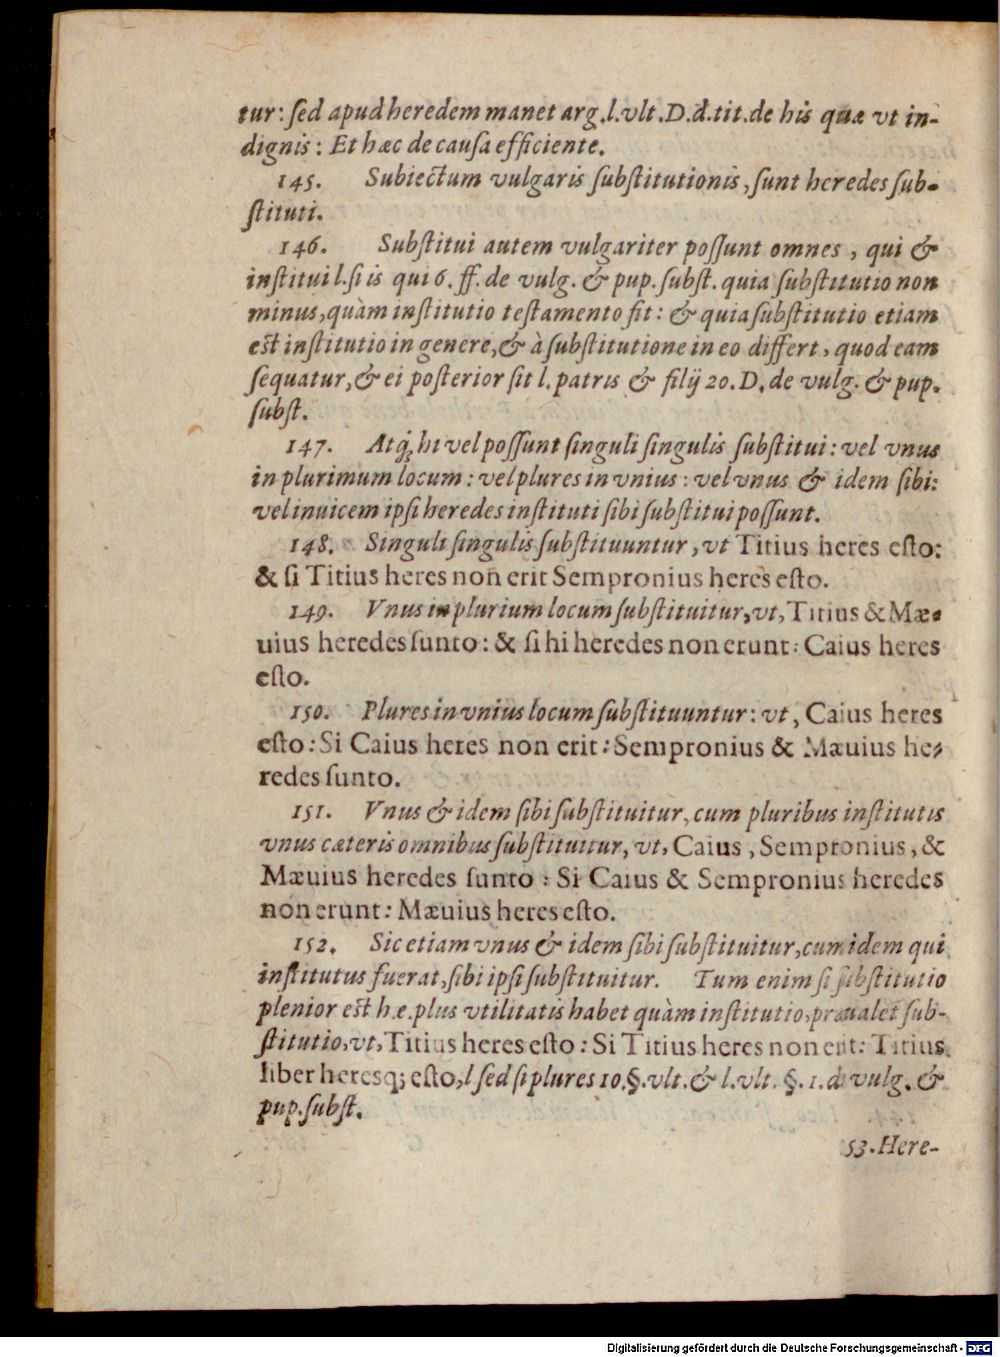 tur: ſed apud heredem manet arg. l. vlt. D. d. tit. de his quæ vt in-
dignis: Et hæc de cauſa efficiente.
145. Subiectum vulgaris ſubſtitutionis, ſunt heredes ſub-
ſtituti.
146. Subſtitui autem vulgariter poſſunt omnes, qui &
inſtitui l. ſi is qui 6. ff. de vulg. & pup. ſubſt. quia ſubſtitutio non
minus, quàm inſtitutio teſtamento fit: & quia ſubſtitutio etiam
est inſtitutio in genere, & à ſubſtitutione in eo differt, quod eam
ſequatur, & ei poſterior ſit l. patris & filij 20. D. de vulg. & pup.
ſubſt.
147. Atq; hi vel poſſunt ſinguli ſingulis ſubſtitui: vel vnus
in plurimum locum: vel plures in vnius: vel vnus & idem ſibi:
vel inuicem ipſi heredes inſtituti ſibi ſubſtitui poſſunt.
148. Singuli ſingulis ſubſtituuntur, vt Titius heres eſto:
& ſi Titius heres non erit Sempronius heres eſto.
149. Vnus in plurium locum ſubſtituitur, vt, Titius & Mæ-
uius heredes ſunto: & ſi hi heredes non erunt: Caius heres
eſto.
150. Plures in vnius locum ſubſtituuntur: vt, Caius heres
eſto: Si Caius heres non erit: Sempronius & Mæuius he-
redes ſunto.
151. Vnus & idem ſibi ſubſtituitur, cum pluribus inſtitutis
vnus cæteris omnibus ſubſtituitur, vt, Caius, Sempronius, &
Mæuius heredes ſunto: Si Caius & Sempronius heredes
non erunt: Mæuius heres eſto.
152. Sic etiam vnus & idem ſibi ſubſtituitur, cum idem qui
inſtitutus fuerat, ſibi ipſi ſubſtituitur. Tum enim ſi ſubſtitutio
plenior est h. e. plus vtilitatis habet quàm inſtitutio, præualet ſub-
ſtitutio, vt, Titius heres eſto: Si Titius heres non erit: Titius
liber heresq; eſto, l ſed ſi plures 10. §. vlt. & l. vlt. §. 1. de vulg. &
pup. ſubſt.
53. Here-
Digitalisierung gefördert durch die Deutsche Forschungsgemeinschaft - DFG